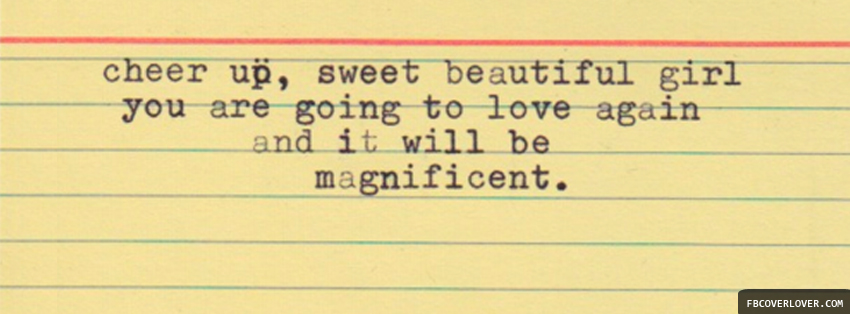 cheer up, sweet beautiful girl
you are going to love again
and it will be
magnificent.
FBCOVERLOVER.COM